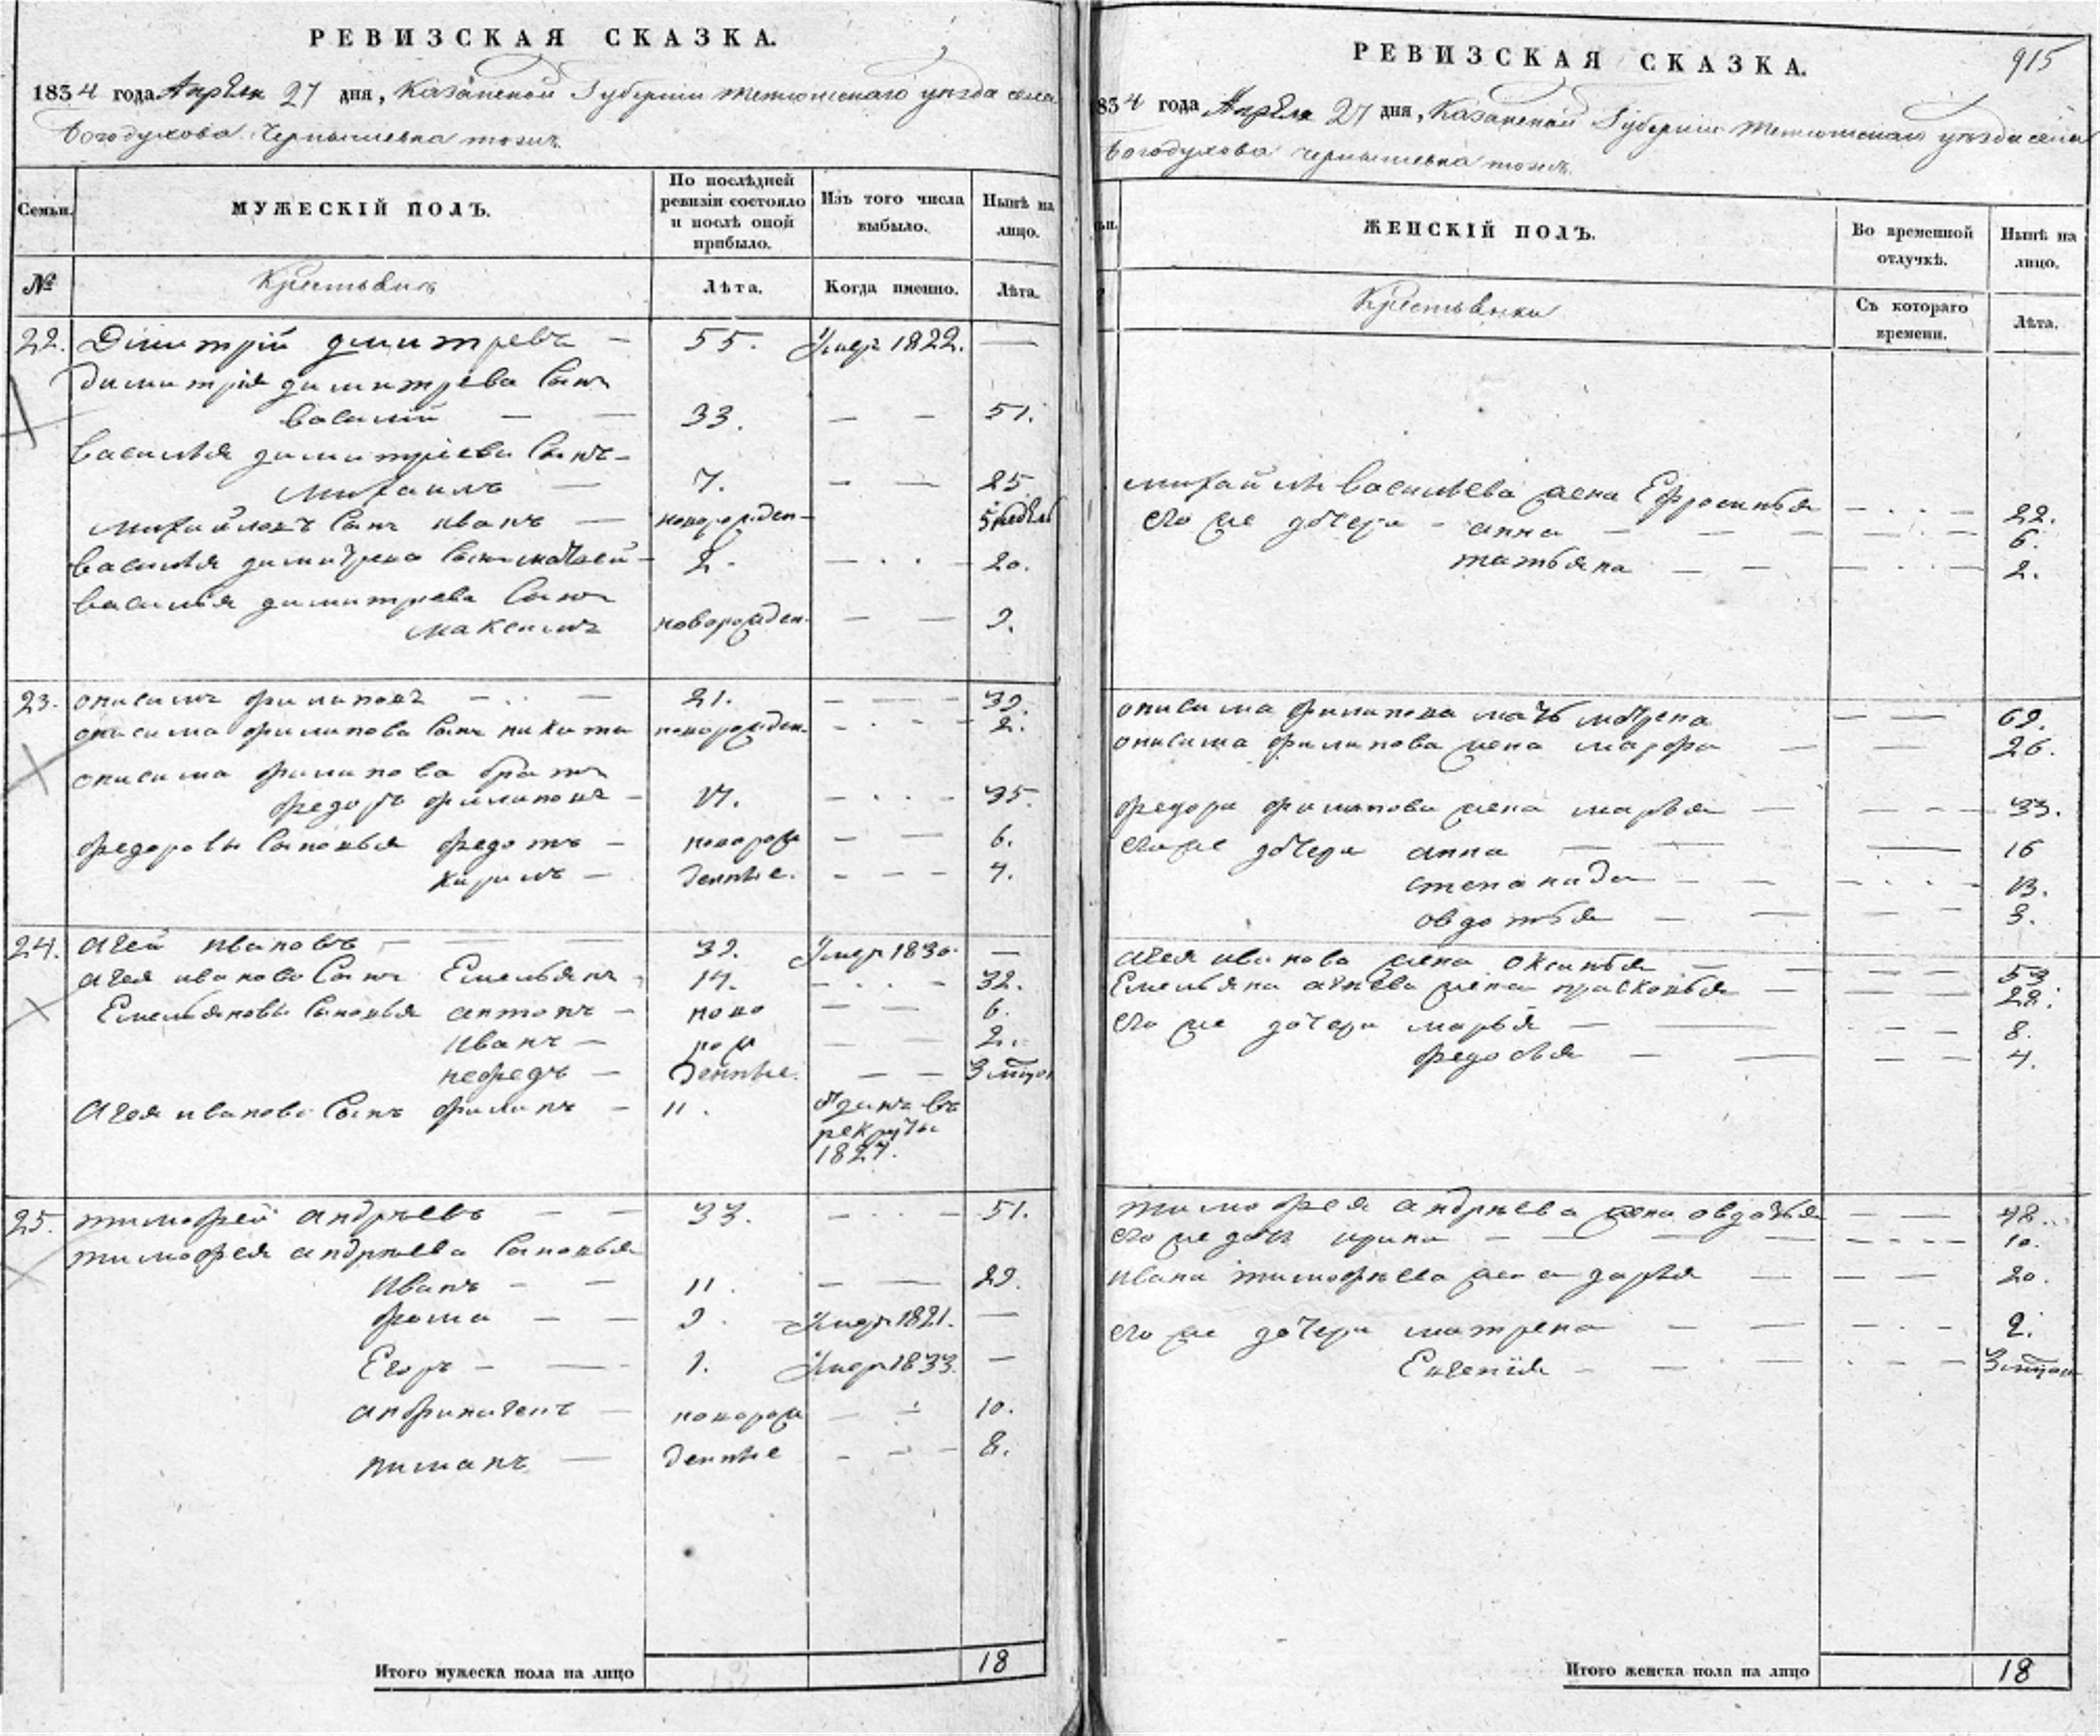 РЕВИЗСКАЯ СКАЗКА.
1834 года Апреля 27 дня, Казанской Губернии Тетюшскаго уезда села
Богодухова Чернышевка тожъ.
Семьи.
МУЖЕСКІЙ ПОЛЪ.
По послѣдней ревизіи состояло и послѣ оной прибыло.
Изъ того числа выбыло.
Нынѣ на лицо.
№
Крестьянъ
Лѣта.
Когда именно.
Лѣта.
22. Димитрій димитревъ — 55. Умер 1822. —
димитрія димитрева Сынъ
василий — — 33. — — 51.
василья димитриева Сынъ —
михаилъ — 7. — — 25
михайловъ Сынъ иванъ — новорожден — 5 недель
василья димитрева Сынъ матвей — 2. — 20.
василья димитрева Сынъ
максимъ новорожден. — — 9.
23. онисимъ филиповъ — — 21. — — 39.
онисима филипова Сынъ никита новорожден. — 2.
онисима филипова братъ
федоръ филиповъ — 17. — 35.
федоровы Сыновья федотъ — новорож — — 6.
кирилъ — денные. — — — 4.
24. агей ивановъ — — 39. Умер 1830. —
агея иванова Сынъ Емельянъ 14. — 32.
Емельяновы Сыновья антонъ — ново — — 6.
иванъ — рож — — 2.
нефедъ — денные. — — 3 мцов
Агея иванова Сынъ филипъ — 11. Отданъ въ
рекруты
1827.
25. тимофей андреевъ — — 33. — 51.
тимофея андреева Сыновья
иванъ — — 11. — — 29.
фома — — 9. Умер 1821. —
Егоръ — — 1. Умер 1833. —
андриянъ — новорож — — 10.
пиманъ — денные — — — 8.
Итого мужеска пола на лицо 18
915
РЕВИЗСКАЯ СКАЗКА.
834 года Апреля 27 дня, Казанской Губернии Тетюшскаго уезда села
Богодухова Чернышевка тожъ.
ЖЕНСКІЙ ПОЛЪ.
Во временной отлучкѣ.
Нынѣ на лицо.
Крестьянки
Съ котораго времени.
Лѣта.
михайлы васильева жена Ефросинья — 22.
его же дочери — анна — — 6.
татьяна — — 2.
онисима филипова мать матрена — — 69.
онисима филипова жена марфа — — 26.
федора филипова жена марья — — 33.
его же дочери анна — — 16
степанида — — 13.
овдотья — — 3.
агея иванова жена оксинья — — 53
Емельяна агеева жена прасковья — — 28.
его же дочери марья — — 8.
федосья — — 4.
тимофея андреева жена овдотья — — 48.
его же дочь ирина — — 10.
ивана тимофеева жена дарья — — 20.
его же дочери матрена — — 2.
Евгения — — 3 мцов
Итого женска пола на лицо 18